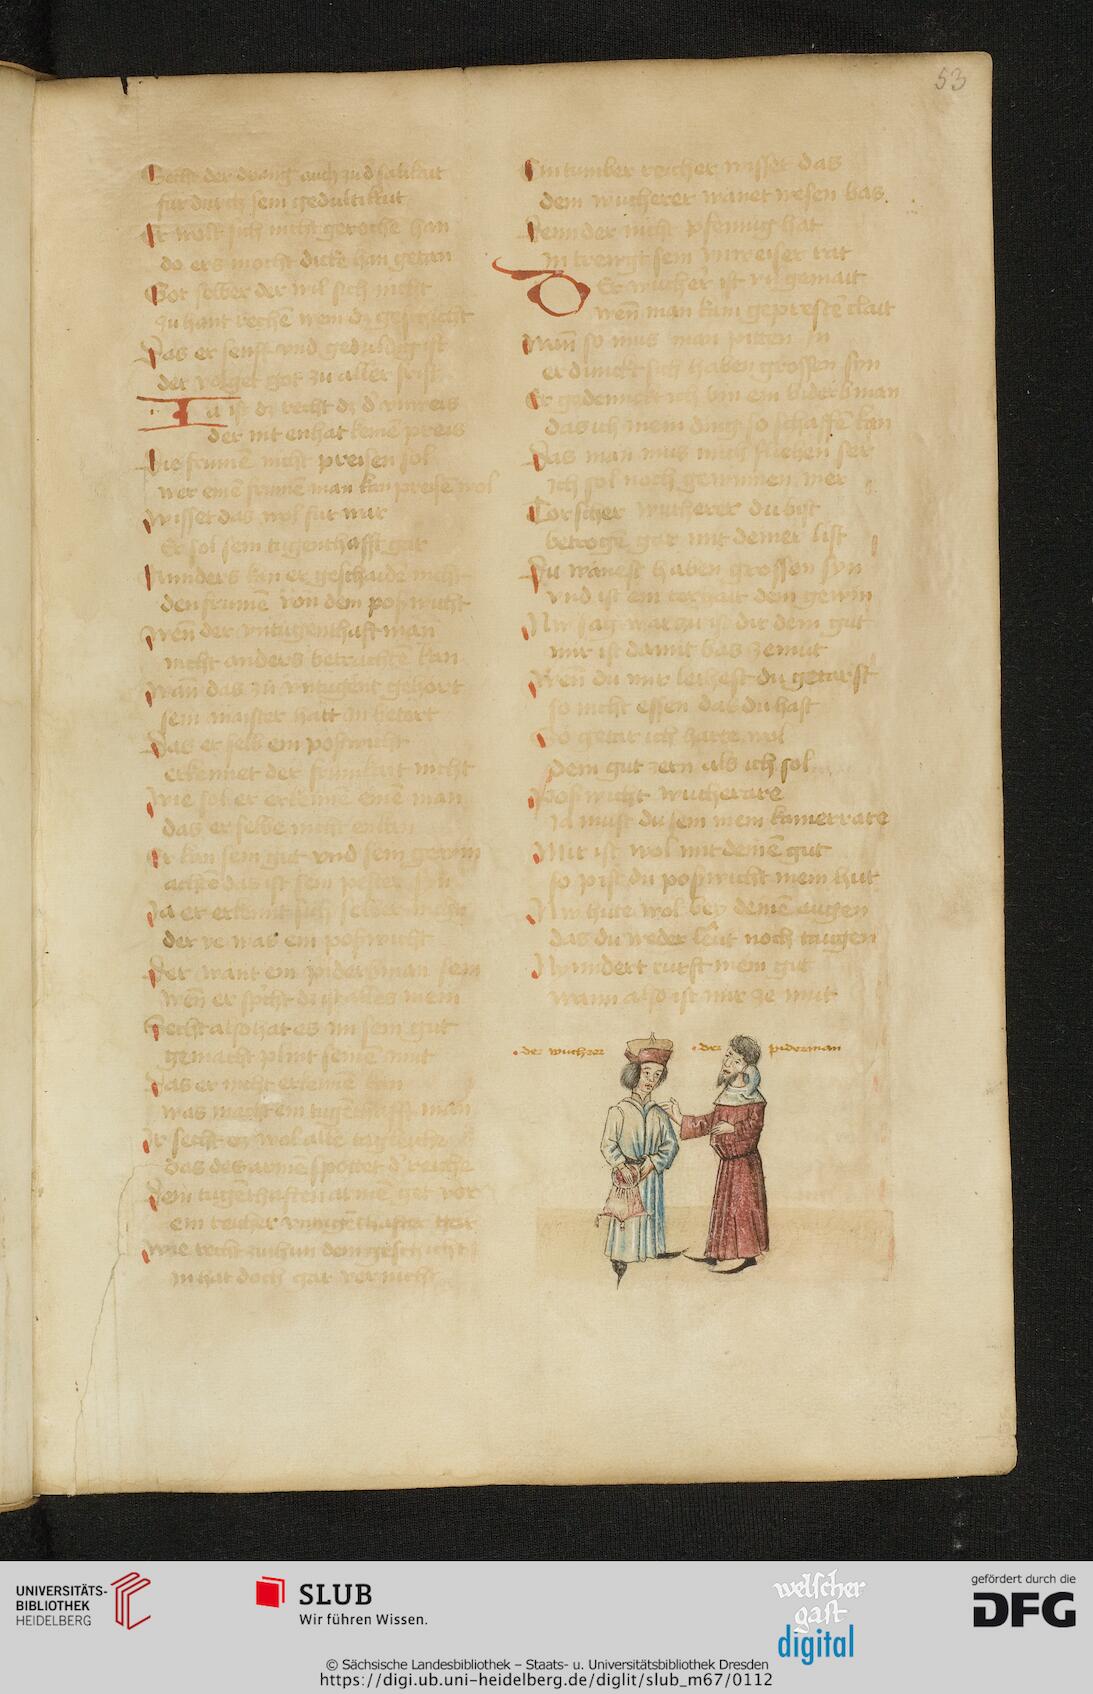 53
Secht der dinng auch zu d salikait
fur durch sein gedultikait
Er wolt sich nicht geroche han
do ers mocht dicke han getan
Got selber der wil sich nicht
zu hant reche wem dz geschicht
Das er senft vnd geduldig ist
der volget got zu aller frist
Ja ist dz recht dz d vnweis
der nit enhat keine preis
Die frume nicht preisen sol
wer eine frume man kan preise wol
Wisset das wol fur war
Er sol sein tugenthafft gar
Annders kan er geschaide nicht
den frume von dem poßwicht
Wen der vntugenthaft man
nicht anders betrachte kan
Wan das zu vntugent gehort
sein maister hatt in betort
Das er selb ein poßwicht
erkennet der frumkait nicht
Wie sol er erkenne eine man
das er selbe nicht enkan
Er kan sein gut vnd sein gewin
das ist sein pester syn
Ja er erkennt sich selber nicht
der ye was ein poßwicht
Der want ein piderbman sein
wen er spcht dz ist alles mein
Secht also hat es im sein gut
gemacht plint seine mut
Das er nicht erkenne
was macht ein tugethafft man
Ir secht wol alle
das des arme spottet d reiche
Dem tugethaften arme get vor
ein reicher vntugethafter tor
Wie recht zuchun dem geschicht
in hat doch gar vernicht
Ein tumber reicher wisset das
dem wucherer wanet wesen bas
Denn der nicht pfennig hat
In trewgt sein vnweiser rat
Der wucher ist vngemait
wen man kain gepreste clait
Wann so mus man pitten In
er dunckt sich haben grossen syn
Er gedennckt ich bin ein biderbman
das ich mein ding so schaffe kan
Das man mus mich fliehen ser
Ich sol noch gewinnen mer
Torscher wucherer du bist
betroge gar mit deiner list
Du wanest haben grossen syn
vnd ist ein torhait dein gewin
Nw sag warzu ist dir dein gut
mir ist damit bas zemut
Wen du mir leihest du getarst
so nicht essen das du hast
So getar ich harte wol
Dein gut zern als ich sol
Poßwicht wucherare
Ia must du sein mein kamerrare
Mir ist wol mit deine gut
so pist du poßwicht mein hut
Nw hute wol bey deine augen
das du weder leut noch taugen
Nyndert rurst mein gut
wann also ist mir ze mut
der wuchrer
der piderman
UNIVERSITÄTS-
BIBLIOTHEK
HEIDELBERG
SLUB
Wir führen Wissen.
welscher
gast
digital
gefördert durch die
DFG
© Sächsische Landesbibliothek – Staats- u. Universitätsbibliothek Dresden
https://digi.ub.uni-heidelberg.de/diglit/slub_m67/0112